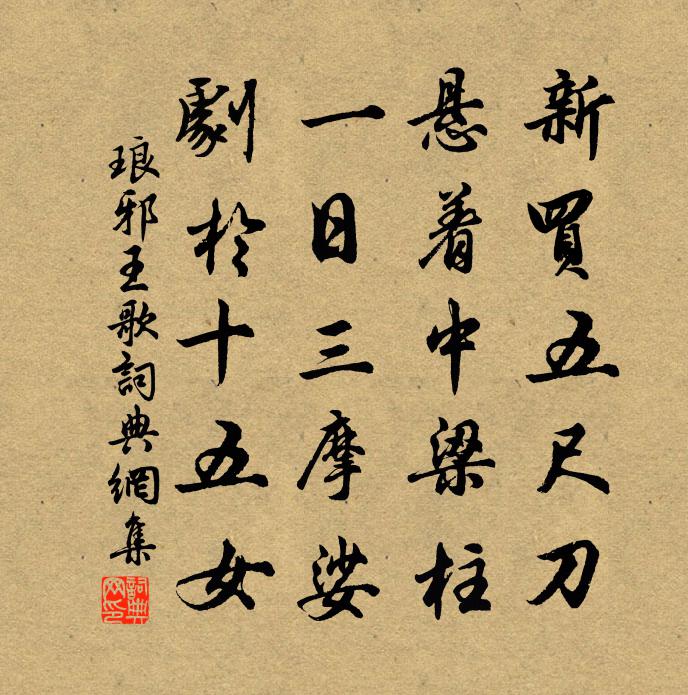 新買五尺刀
悬着中梁柱
一日三摩娑
劇於十五女
琅邪王歌詞典網集
詞典網印